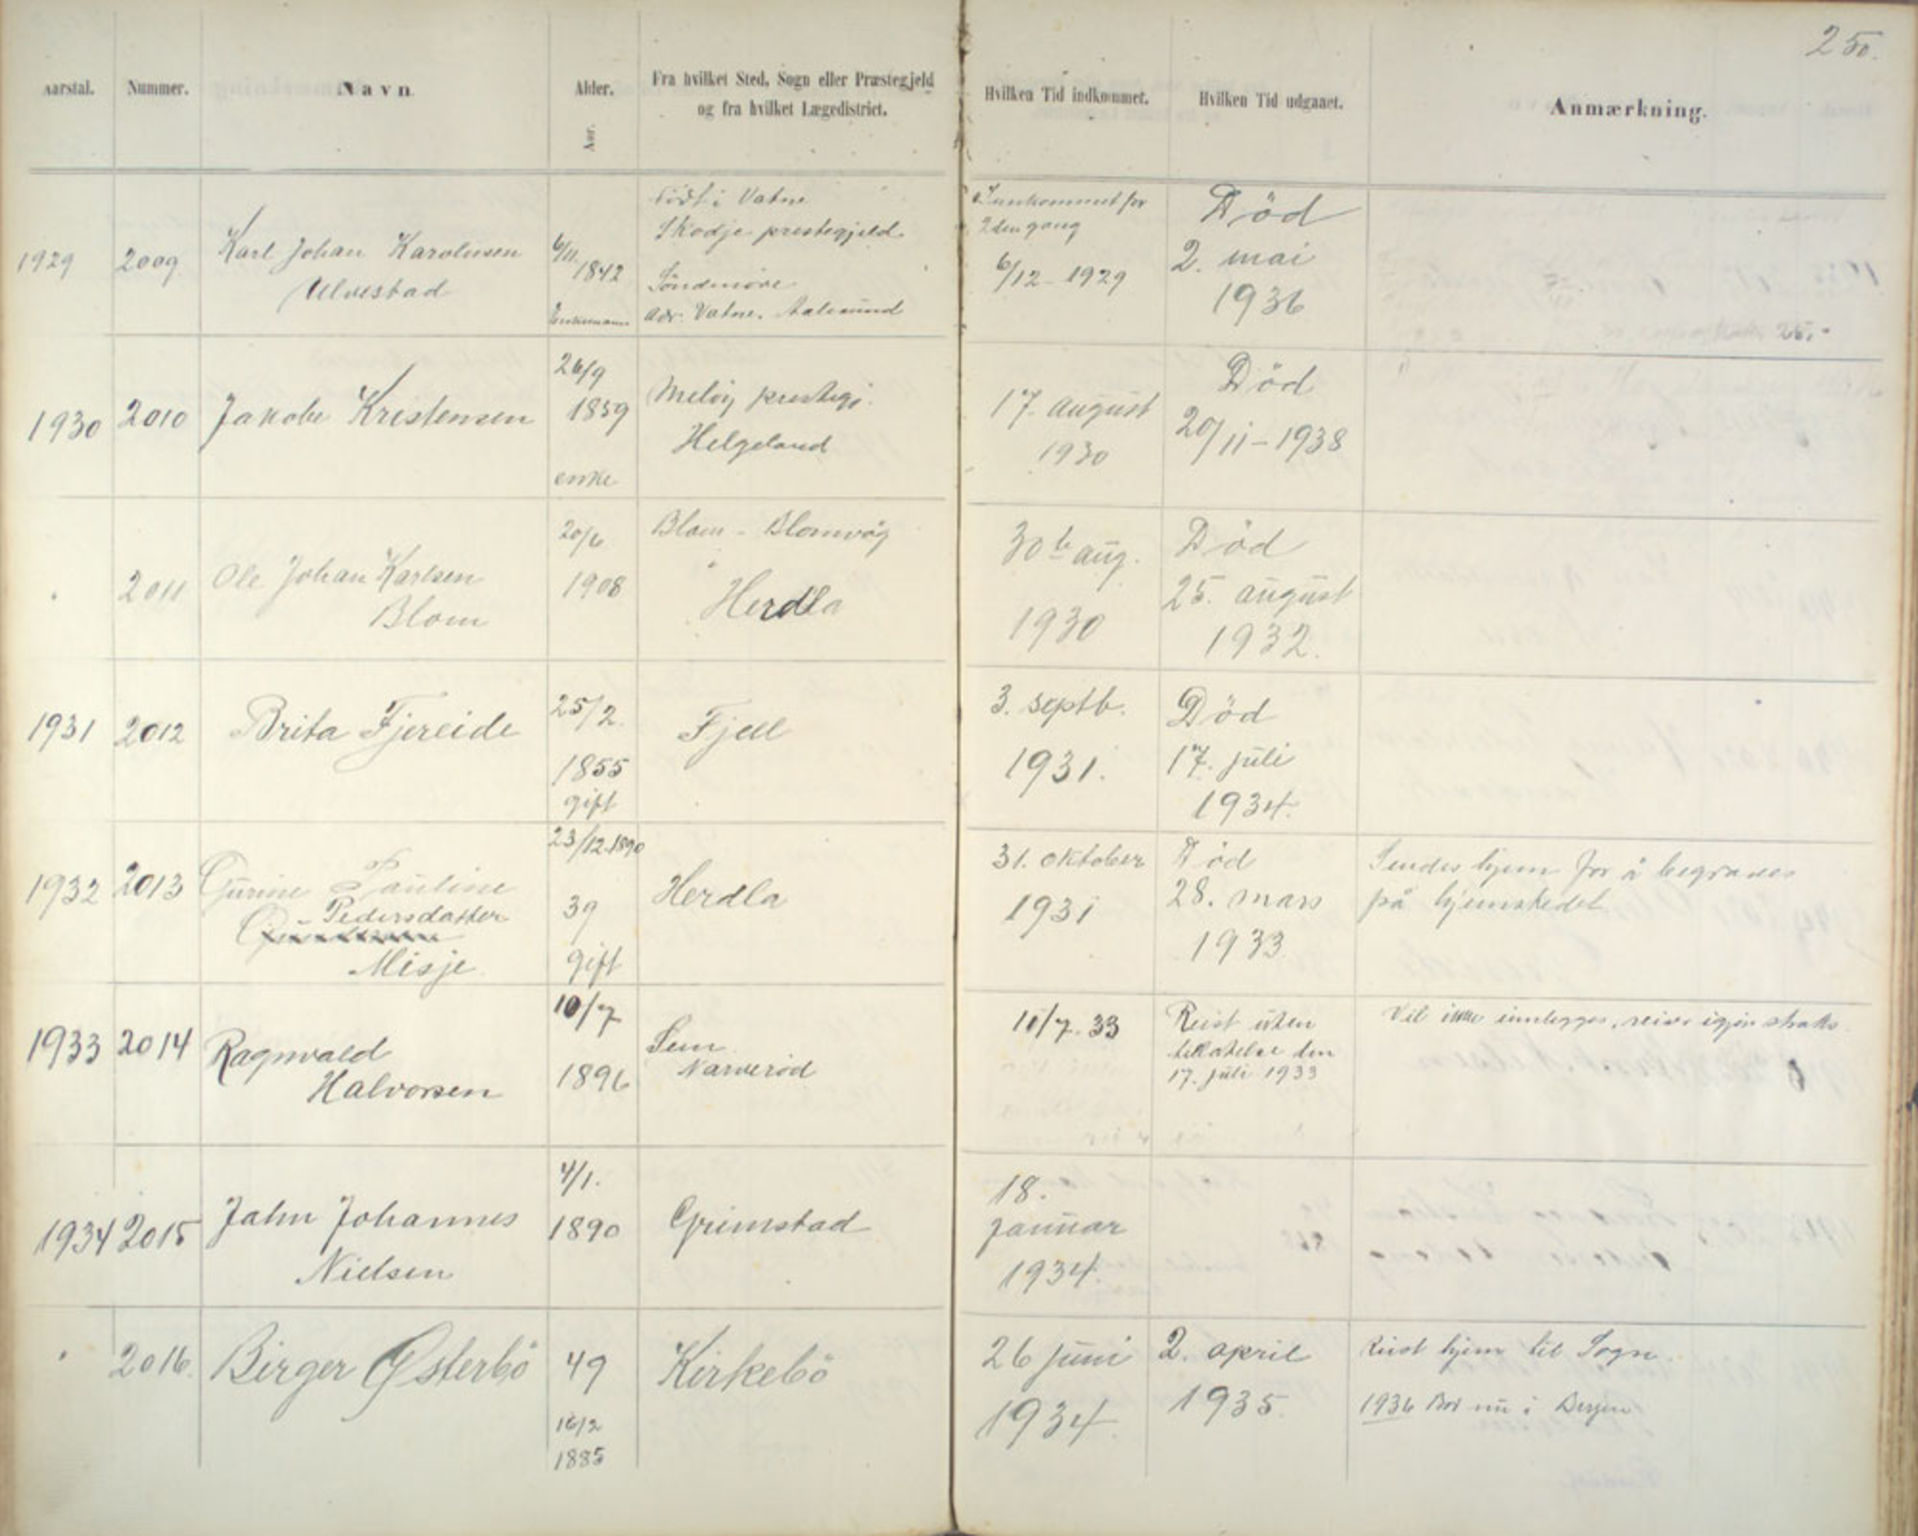 250.
Aarstal.
Nummer.
Navn
Alder.
Aar.
Fra hvilket Sted, Sogn eller Præstegjeld
og fra hvilket Lægedistrict.
Hvilken Tid indkommet.
Hvilken Tid udgaaet.
Anmærkning.
1929
2009
Karl Johan Karolusen
Ulvestad
6/11
1842
Enkemann
Födt i Vatne
Skodje prestegjeld
Söndmöre
Adr. Vatne. Aalesund
Innkommet for
2den gang
6/12 - 1929
Död
2. mai
1936
25,-
1930
2010
Jakobe Kristensen
26/9
1859
enke
Melöy prestegj.
Helgeland
17. august
1930
Död
20/11 - 1938
2011
Ole Johan Karlsen
Blom
20/6
1908
Blom - Blomvåg
Herdla
30te aug.
1930
Död
25. august
1932.
1931
2012
Brita Fjereide
25/2.
1855
gift
Fjell
3. septb.
1931.
Död
17. juli
1934.
1932
2013
Gurine Pauline
Pedersdatter
Misje
23/12.1890
39
gift
Herdla
31. oktober
1931
Död
28. mars
1933
Sendes hjem for å begraves
på hjemstedet
1933
2014
Ragnvald
Halvorsen
10/7
1896
Sem
Narverød
11/7. 33
Reist uten
tillatelse den
17. juli 1933
Vil ikke innlegges, reiser igjen straks.
1934
2015
Jahn Johannes
Nielsen
4/1.
1890
Grimstad
18.
januar
1934.
2016.
Birger Østerbö
49
16/2
1885
Kirkebö
26 juni
1934.
2. april
1935.
Reist hjem til Sogn.
1936 Bor nu i Bergen